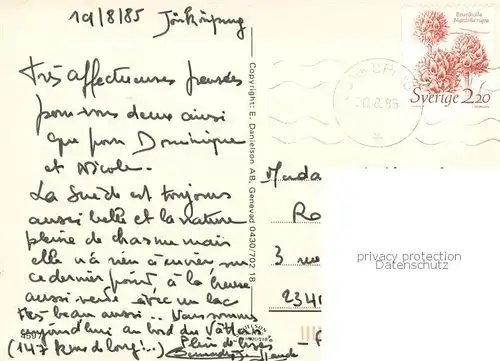 19/8/85 Jönköping
Très affectueuses pensées
pour vous deux ainsi
que pour Dominique
et Nicole.
La Suède est toujours
aussi belle et la nature
pleine de charme mais
elle n'a rien à envier sur
ce dernier point, à la Creuse
aussi verte avec un lac
très beau aussi.. Nous sommes
aujourd'hui au bord du Vättern
(147 kms de long!...) Plein de bises
Copyright: E. Danielson AB, Genevad 0430/702 18
4597
Brunkulla
Nigritella nigra
Sverige 2.20
Madame
Ro
3 rue
2340
privacy protection
Datenschutz